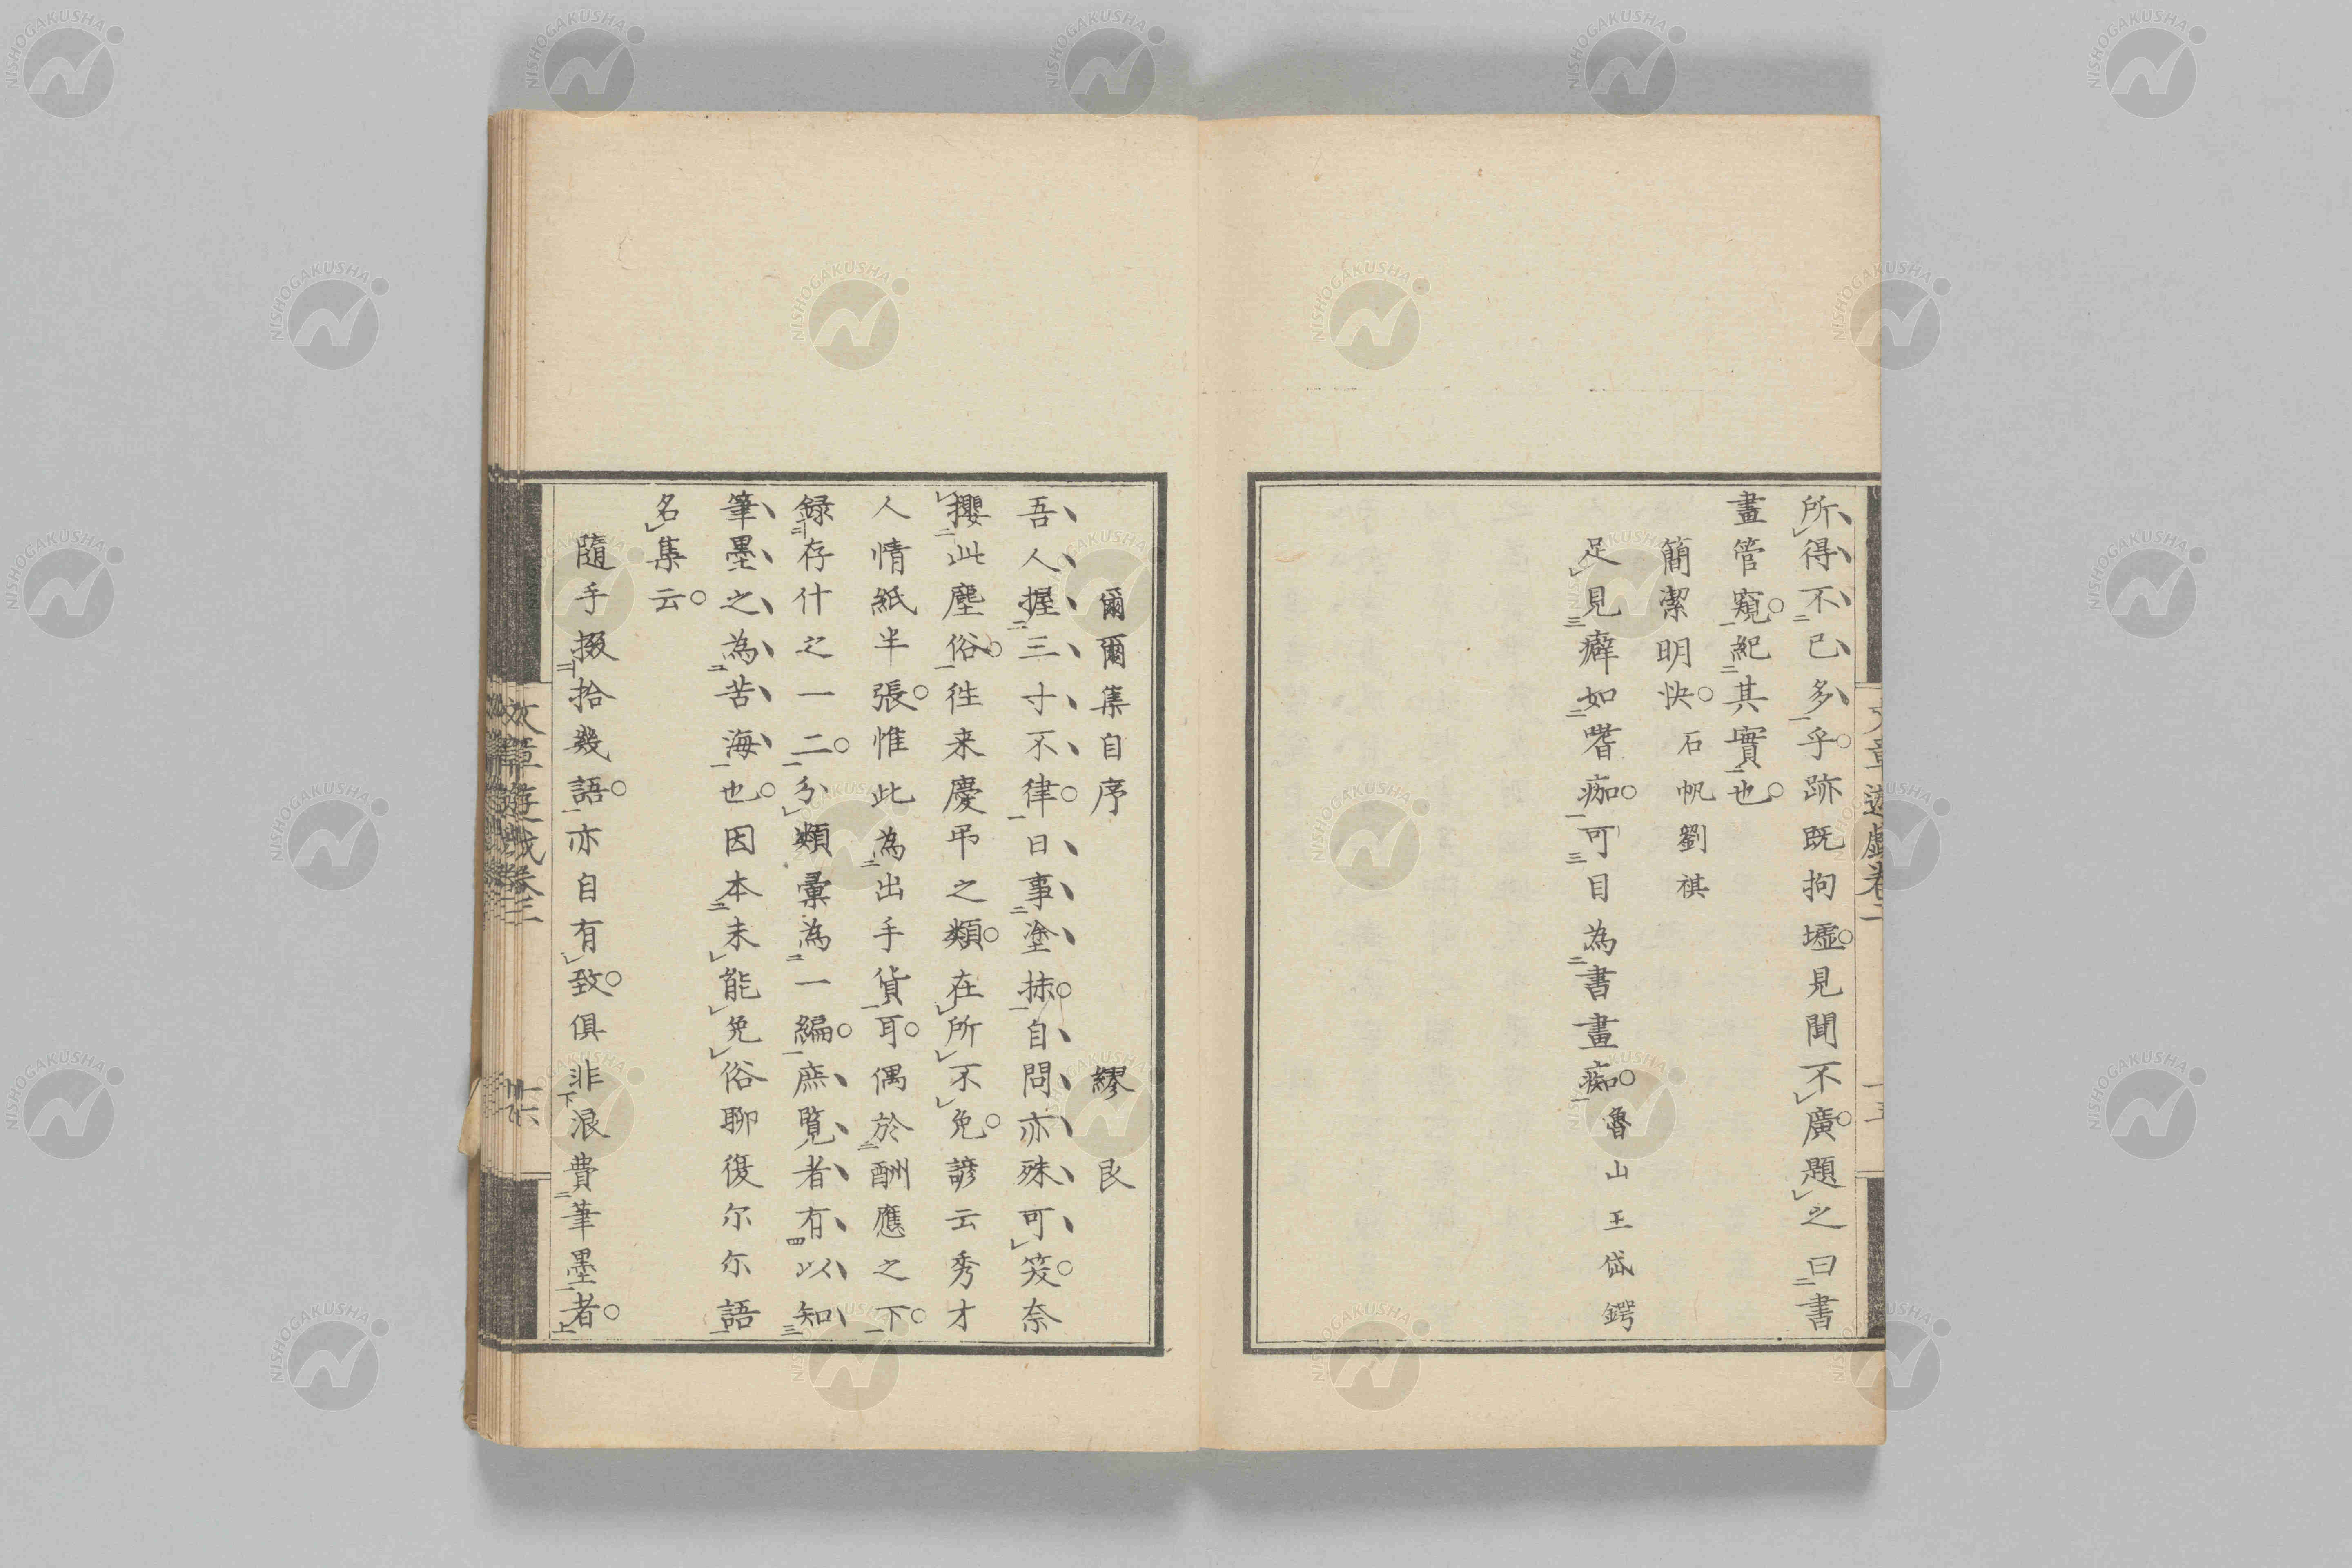 所得不已多乎。跡既拘墟。見聞不廣。題之曰書
畫管窺。紀其實也。
簡潔明快。石帆劉祺
足見癖如嗜痂。可目為書畫痴。魯山王岱鍔
爾爾集自序　繆艮
吾人握三寸不律。日事塗抹。自問亦殊可笑。奈
攖此塵俗。往来慶弔之類。在所不免。諺云秀才
人情紙半張。惟此為出手貨耳。偶於酬應之下。
録存什之一二。分類彙為一編。庶覧者有以知
筆墨之為苦海也。因本未能免俗聊復尔尔語
名集云。
隨手掇拾幾語。亦自有致。俱非浪費筆墨者。
文章遊戯巻三
廿六
NISHOGAKUSHA